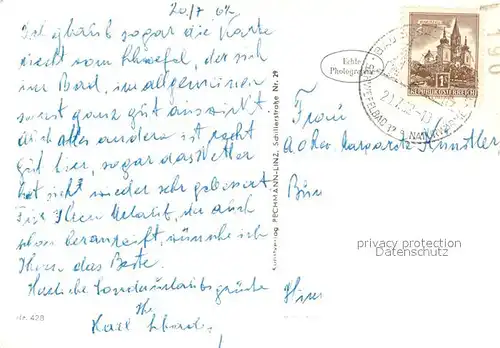 20/7 62
Ich glaub sogar die Karte
riecht vom Schwefel, der sich
im Bad, im allgemeinen
sonst ganz gut auswirkt.
Auch alles andere ist recht
gut hier, sogar das Wetter
hat sich wieder sehr gebessert
Für Ihren Urlaub, der auch
schon heranreift, wünsche ich
Ihnen das Beste.
Herzliche Sonderurlaubsgrüße
Ihr
Karl
Nr. 428
Kunstverlag PECHMANN-LINZ, Schillerstraße Nr. 29
Echte
Photographie
REPUBLIK ÖSTERREICH
Frau
Margarete Künstler
privacy protection
Datenschutz